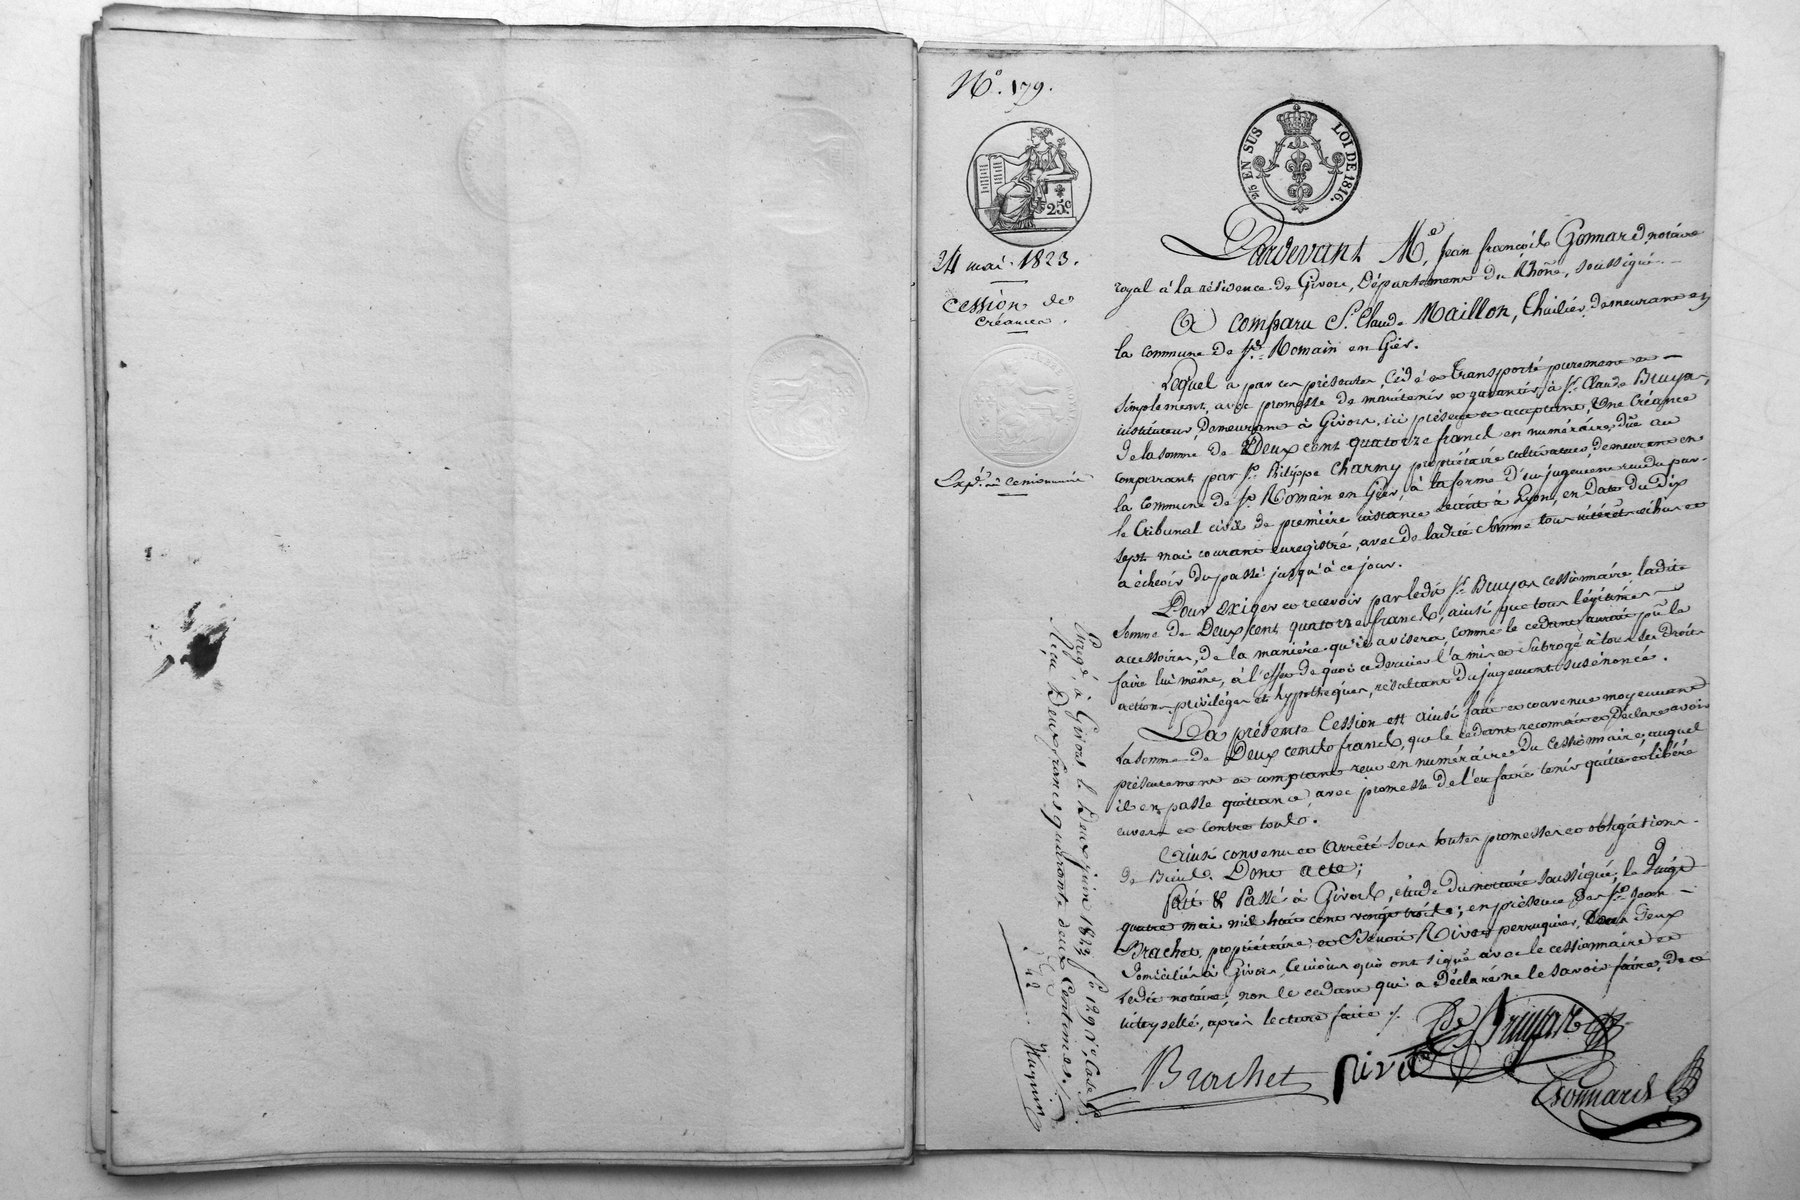 N.o 179.
25c
2/5 EN SUS LOI DE 1816.
24 mai 1823.
Cession de
créances.
Exp.on au cessionnaire
Pardevant M.e Jean françois Gonnard, notaire
royal à la résidence de Givors, Département du Rhône, soussigné.
A comparu S.r Claude Maillon, Thuilier, demeurant en
la commune de S.t Romain en Gier.
Lequel a par ces présentes, Cédé et transporté purement et
simplement, avec promesse de maintenir et garantir, à S.r Claude Bruyas,
instituteur, Demeurant à Givors, ici présent et acceptant, Une Créance
de la somme de Deux cent quatorze francs en numéraire, dûe au
comparant, par S.r Philippe Charmy propriétaire cultivateur, demeurant en
la commune de S.t Romain en Gier, à la forme d'un jugement rendu par
le tribunal civil de première instance séant à Lyon, en Date du Dix
sept mai courant enregistré, avec de ladite Somme tous intérêts échus et
a échéoir du passé jusqu'à ce jour.
Pour exiger et recevoir par ledit S.r Bruyas cessionnaire, ladite
somme de Deux cent quatorze francs, ainsi que tous légitimes
accessoires, de la manière qu'il avisera, comme le cédant auroit pû le
faire lui même, à l'effet de quoi ce dernier l'a mis et subrogé à tous ses droits
actions, privilèges et hypothèques, résultant du jugement susénoncé.
La présente Cession est ainsi faite et convenue moyennant
la somme de Deux cents francs, que le cédant reconnait et Déclare avoir
présentement et comptant reçu en numéraire du Cessionnaire, auquel
il en passe quittance, avec promesse de l'en faire tenir quitte et libéré
envers et contre tous.
Ainsi convenu et arrêté sous toutes promesses et obligations
de Biens. Dont acte;
fait & Passé à Givors, étude du notaire soussigné, le vingt
quatre mai mil huit cent vingt trois; en présence des S.rs Jean
Brachet, propriétaire, et Benoit Rivet perruquier, tous deux
Domiciliés à Givors, témoins qui ont signé avec le cessionnaire et
ledit notaire, non le cédant qui a déclaré ne le savoir faire, de ce
interpellé, après lecture faite ./.
Bruyas
Brachet Rivet
Gonnard
Enregé. à Givors le Deux juin 1823 f.o 129 r.o Case
Reçu Deux francs quarante deux Centimes ./.